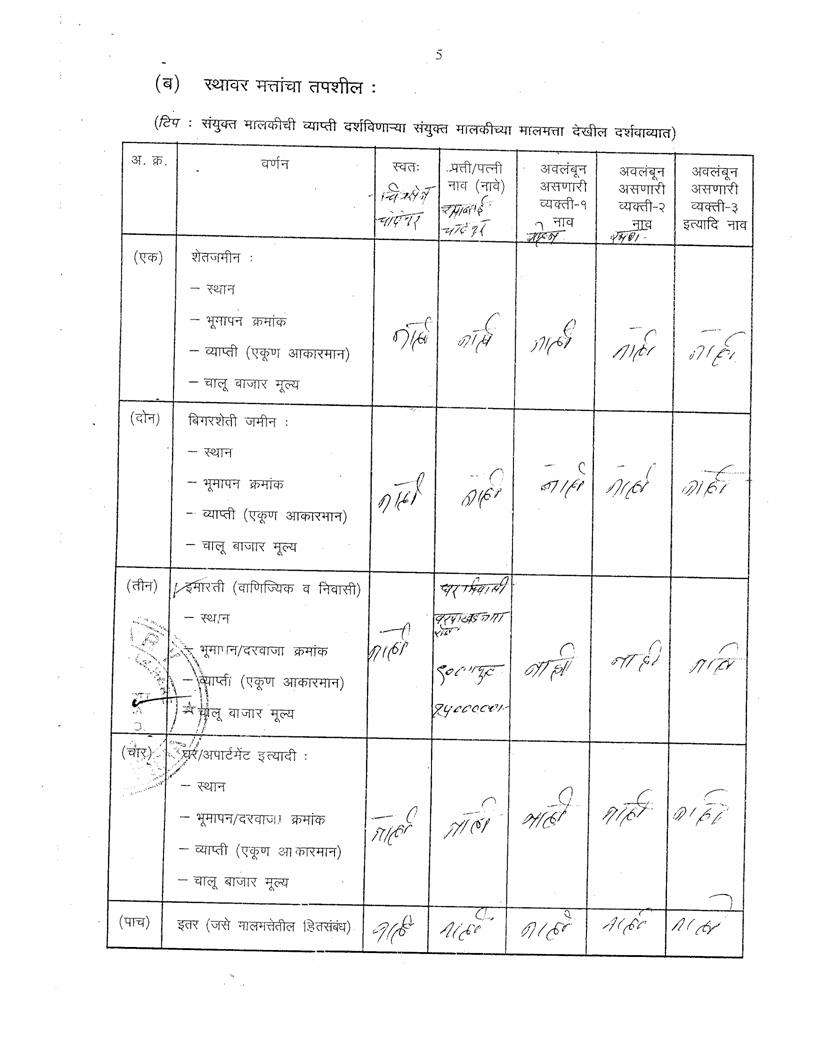 5
(ब) स्थावर मत्तांचा तपशील :
(टिप : संयुक्त मालकीची व्याप्ती दर्शविणाऱ्या संयुक्त मालकीच्या मालमत्ता देखील दर्शवाव्यात)
अ. क्र. वर्णन स्वतः प्रत्ती/पत्नी नाव (नावे) अवलंबून असणारी व्यक्ती-१ नाव अवलंबून असणारी व्यक्ती-२ नाव अवलंबून असणारी व्यक्ती-३ इत्यादि नाव
(एक) शेतजमीन :
– स्थान
– भूमापन क्रमांक
– व्याप्ती (एकूण आकारमान)
– चालू बाजार मूल्य
नाही नाही नाही नाही नाही
(दोन) बिगरशेती जमीन :
– स्थान
– भूमापन क्रमांक
- व्याप्ती (एकूण आकारमान)
– चालू बाजार मूल्य
नाही नाही नाही नाही नाही
(तीन) इमारती (वाणिज्यिक व निवासी)
– स्थान
– भूमापन/दरवाजा क्रमांक
– व्याप्ती (एकूण आकारमान)
चालू बाजार मूल्य
नाही घर निवासी नाही नाही नाही
(चार) घर/अपार्टमेंट इत्यादी :
– स्थान
- भूमापन/दरवाजा क्रमांक
– व्याप्ती (एकूण आकारमान)
– चालू बाजार मूल्य
नाही नाही नाही नाही नाही
(पाच) इतर (जसे मालमत्तेतील हितसंबंध) नाही नाही नाही नाही नाही